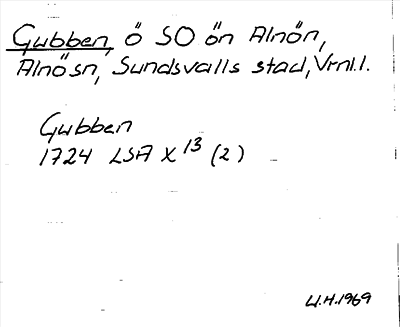 Gubben, ö SO ön Alnön,
Alnösn, Sundsvalls stad, Vrnl.l.
Gubben
1724 LSA X 13 (2)
U.H.1969